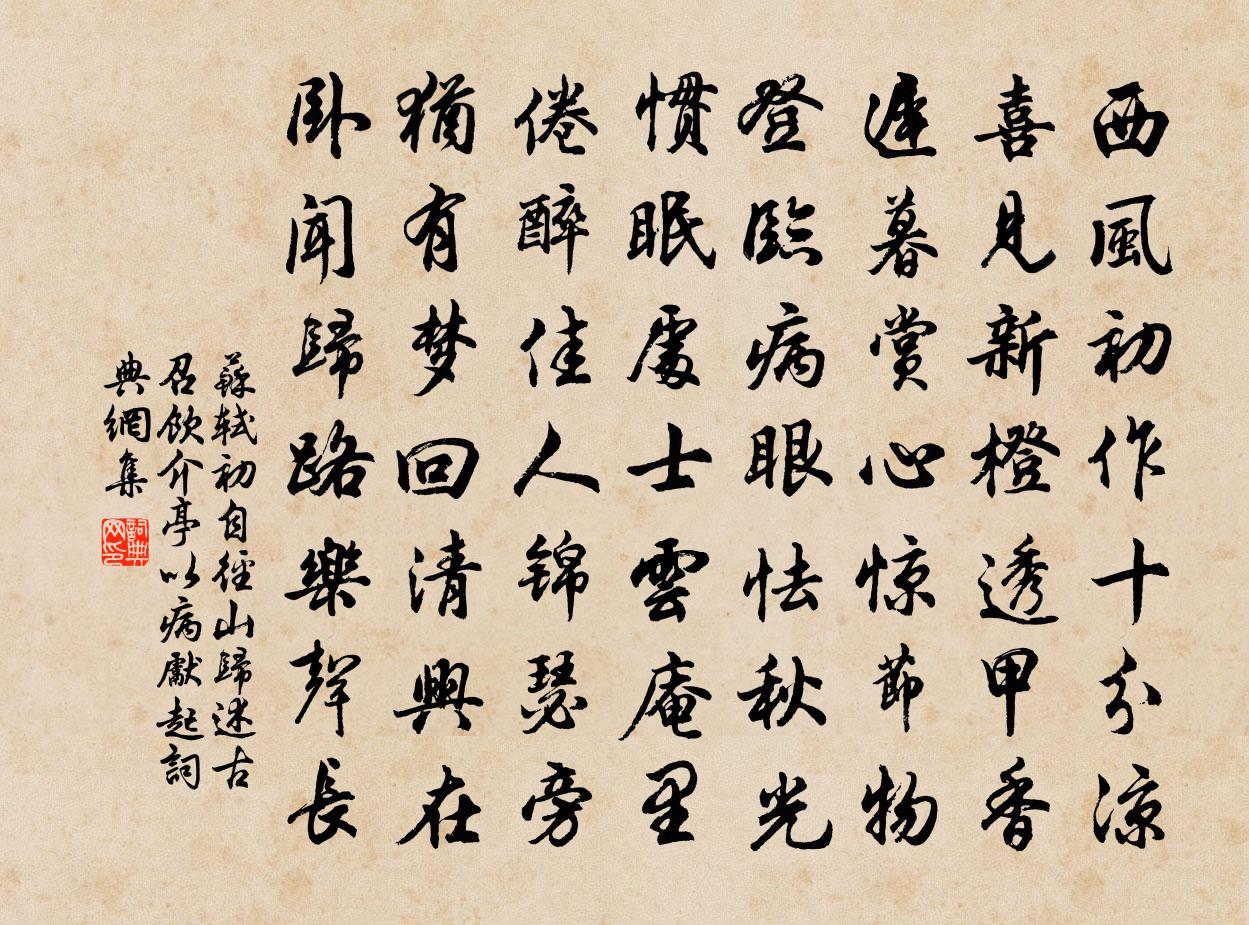 西風初作十分涼
喜見新橙透甲香
遲暮賞心惊節物
登臨病眼怯秋光
慣眠處士雲庵里
倦醉佳人锦瑟旁
猶有梦回清興在
卧聞歸路樂聲長
蘇軾初自徑山歸述古
召飲介亭以病獻起詞
典網集
詞典网印